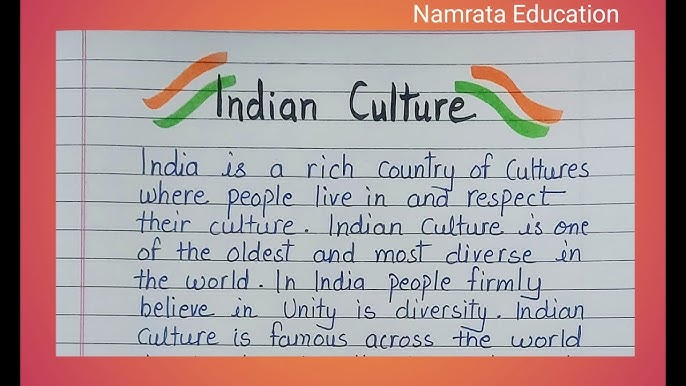 Namrata Education
Indian Culture
India is a rich country of Cultures
where people live in and respect
their culture. Indian Culture is one
of the oldest and most diverse in
the world. In India people firmly
believe in Unity is diversity. Indian
Culture is famous across the world